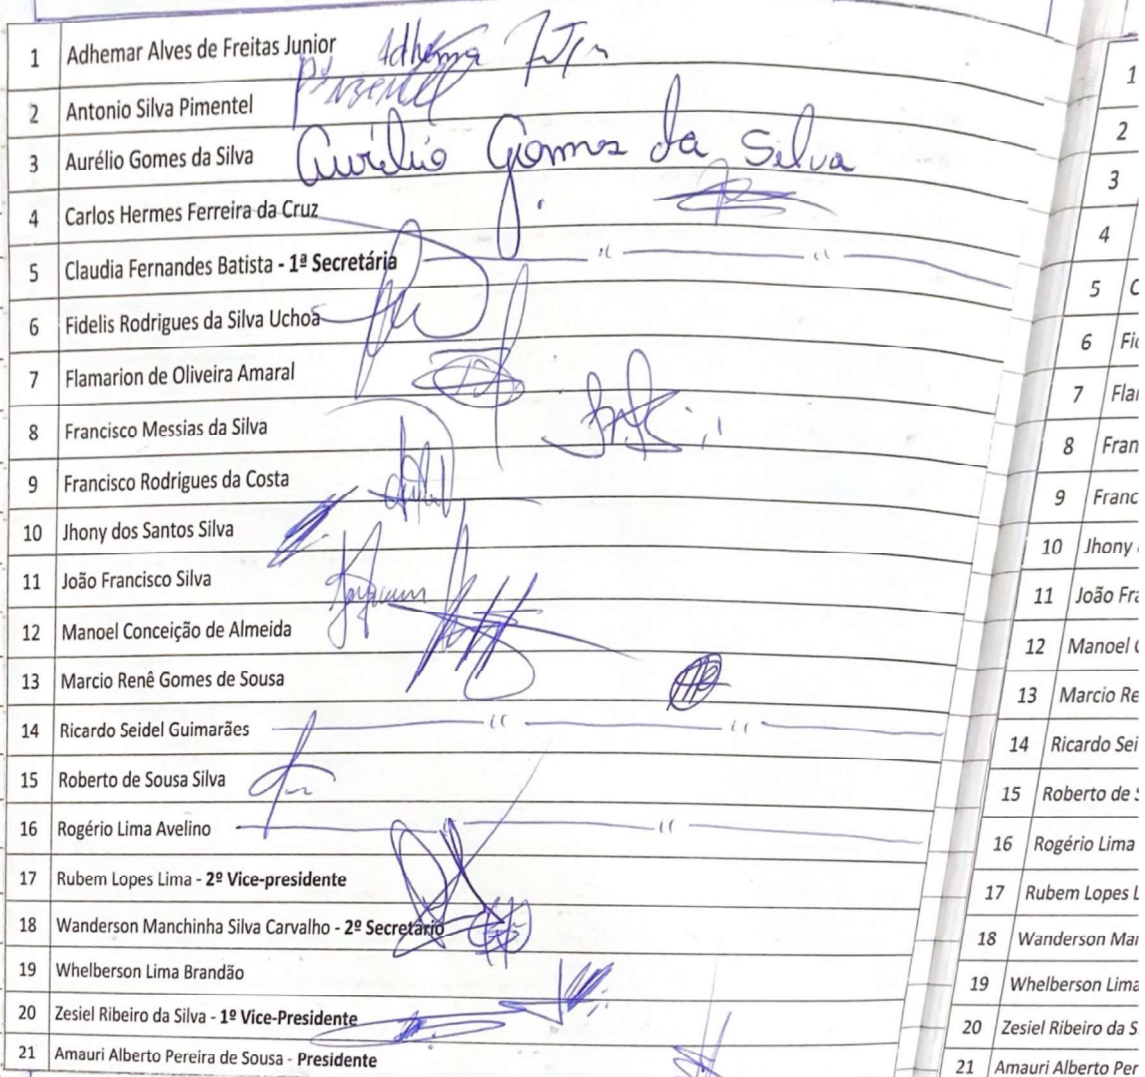 1 Adhemar Alves de Freitas Junior Adhema
2 Antonio Silva Pimentel Pimentel
3 Aurélio Gomes da Silva Aurélio Gomes da Silva
4 Carlos Hermes Ferreira da Cruz
5 Claudia Fernandes Batista - 1ª Secretária
6 Fidelis Rodrigues da Silva Uchoa
7 Flamarion de Oliveira Amaral
8 Francisco Messias da Silva
9 Francisco Rodrigues da Costa
10 Jhony dos Santos Silva
11 João Francisco Silva
12 Manoel Conceição de Almeida
13 Marcio Renê Gomes de Sousa
14 Ricardo Seidel Guimarães
15 Roberto de Sousa Silva
16 Rogério Lima Avelino
17 Rubem Lopes Lima - 2º Vice-presidente
18 Wanderson Manchinha Silva Carvalho - 2º Secretário
19 Whelberson Lima Brandão
20 Zesiel Ribeiro da Silva - 1º Vice-Presidente
21 Amauri Alberto Pereira de Sousa - Presidente
1
2
3
4
5 C
6 Fid
7 Flar
8 Fran
9 Franc
10 Jhony
11 João Fra
12 Manoel C
13 Marcio Re
14 Ricardo Sei
15 Roberto de S
16 Rogério Lima
17 Rubem Lopes L
18 Wanderson Mar
19 Whelberson Lima
20 Zesiel Ribeiro da S
21 Amauri Alberto Per